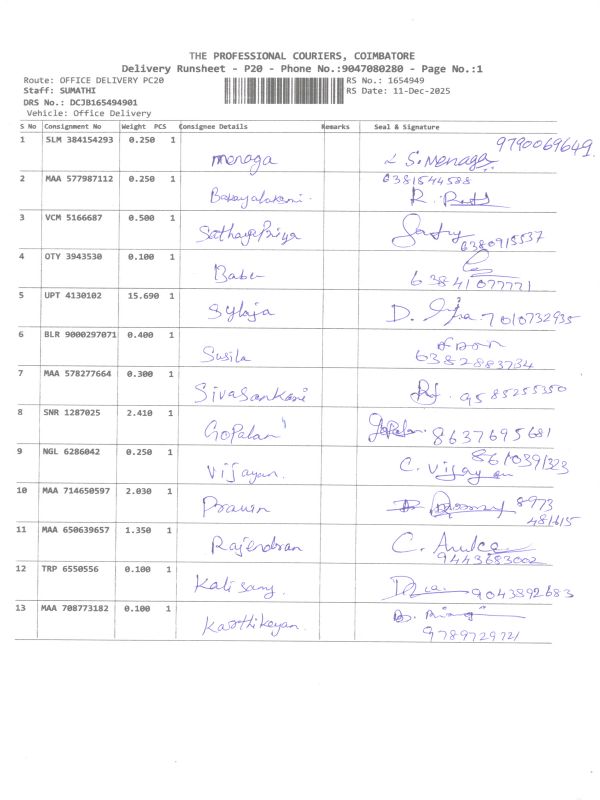 THE PROFESSIONAL COURIERS, COIMBATORE
Delivery Runsheet - P20 - Phone No.:9047080280 - Page No.:1
Route: OFFICE DELIVERY PC20 RS No.: 1654949
Staff: SUMATHI RS Date: 11-Dec-2025
DRS No.: DCJB165494901
Vehicle: Office Delivery
S No Consignment No Weight PCS Consignee Details Remarks Seal & Signature
1 SLM 384154293 0.250 1 9790069649
menaga S. Menaga
2 MAA 577987112 0.250 1 6381544588
3 VCM 5166687 0.500 1
SathyaPriya 6380915537
4 QTY 3943530 0.100 1
Babu 6384107771
5 UPT 4130102 15.690 1
Sylaja D. 7010732935
6 BLR 9000297071 0.400 1
Susila 6382883734
7 MAA 578277664 0.300 1
Sivasankari 9585255350
8 SNR 1287025 2.410 1
GoPalan GoPalan 8637695681
9 NGL 6286042 0.250 1 8610391323
Vijayan. C. Vijayan
10 MAA 714650597 2.030 1 8973
Pravin 481615
11 MAA 650639657 1.350 1
Rajendran C.
9443683002
12 TRP 6550556 0.100 1
Kalisamy. 9043892683
13 MAA 708773182 0.100 1
Karthikeyan. 9789729721